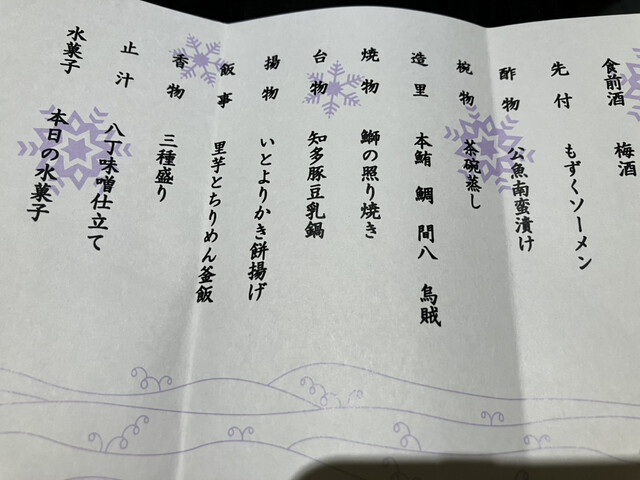 食前酒 梅酒
先付 もずくソーメン
酢物 公魚南蛮漬け
椀物 茶碗蒸し
造里 本鮪 鯛 間八 烏賊
焼物 鰤の照り焼き
台物 知多豚豆乳鍋
揚物 いとよりかき餅揚げ
飯事 里芋とちりめん釜飯
香物 三種盛り
止汁 八丁味噌仕立て
水菓子 本日の水菓子